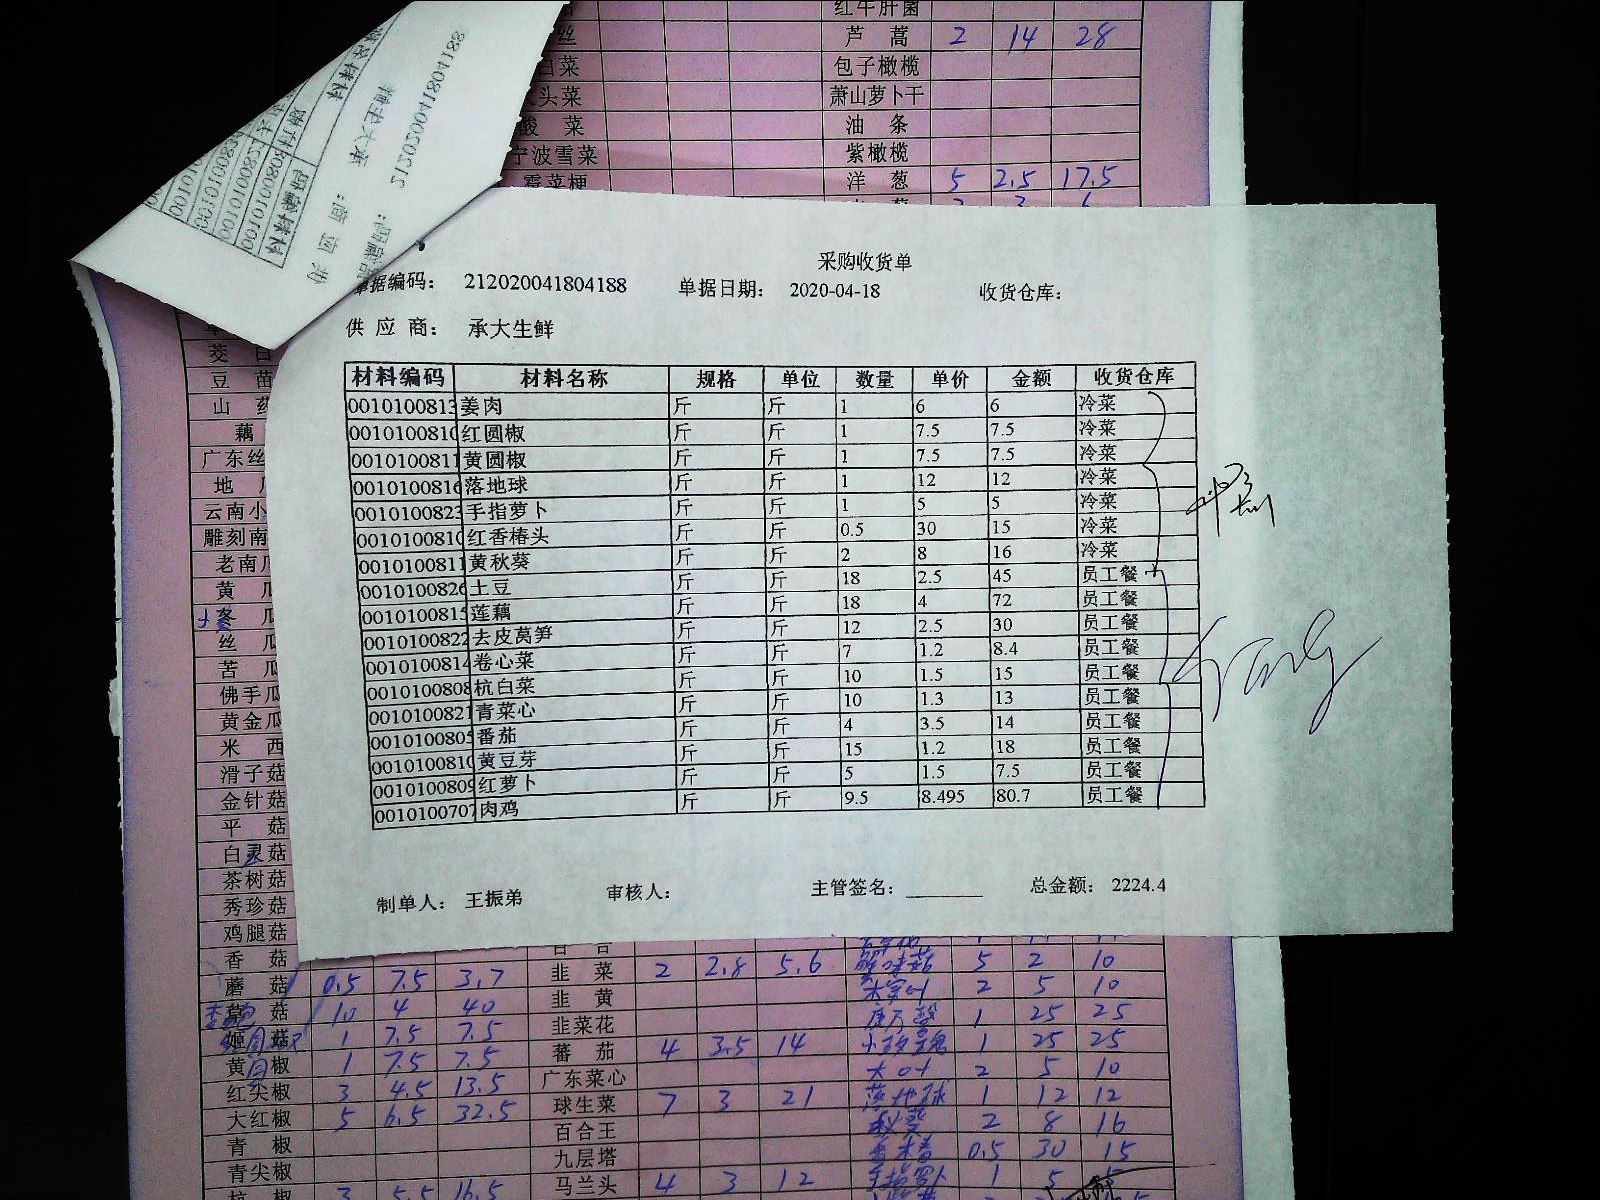 红牛肝菌
芦 蒿 2 14 28
白菜 包子橄榄
头菜 萧山萝卜干
酸 菜 油 条
宁波雪菜 紫橄榄
霉菜梗 洋 葱 5 2.5 17.5
采购收货单
单据编码： 212020041804188 单据日期： 2020-04-18 收货仓库：
供 应 商： 承大生鲜
材料编码 材料名称 规格 单位 数量 单价 金额 收货仓库
0010100813 姜肉 斤 斤 1 6 6 冷菜
001010081 红圆椒 斤 斤 1 7.5 7.5 冷菜
0010100811 黄圆椒 斤 斤 1 7.5 7.5 冷菜
0010100816 落地球 斤 斤 1 12 12 冷菜
0010100823 手指萝卜 斤 斤 1 5 5 冷菜
001010081 红香椿头 斤 斤 0.5 30 15 冷菜
0010100811 黄秋葵 斤 斤 2 8 16 冷菜
0010100826 土豆 斤 斤 18 2.5 45 员工餐
0010100815 莲藕 斤 斤 18 4 72 员工餐
0010100822 去皮莴笋 斤 斤 12 2.5 30 员工餐
0010100814 卷心菜 斤 斤 7 1.2 8.4 员工餐
0010100808 杭白菜 斤 斤 10 1.5 15 员工餐
0010100821 青菜心 斤 斤 10 1.3 13 员工餐
0010100805 番茄 斤 斤 4 3.5 14 员工餐
001010081 黄豆芽 斤 斤 15 1.2 18 员工餐
0010100809 红萝卜 斤 斤 5 1.5 7.5 员工餐
0010100707 肉鸡 斤 斤 9.5 8.495 80.7 员工餐
制单人： 王振弟 审核人： 主管签名： 总金额： 2224.4
茭 白
豆 苗
山 药
藕
广东丝
地
云南小
雕刻南
老南瓜
黄 瓜
冬 瓜
丝 瓜
苦 瓜
佛手瓜
黄金瓜
米 西
滑子菇
金针菇
平 菇
白灵菇
茶树菇
秀珍菇
鸡腿菇
香 菇 韭 菜 2 2.8 5.6 5 2 10
蘑 菇 0.5 7.5 3.7 韭 黄 2 5 10
草 菇 10 4 40 韭菜花 1 25 25
姬 菇 1 7.5 7.5 蕃 茄 4 3.5 14 1 25 25
黄 椒 1 7.5 7.5 广东菜心 大叶 2 5 10
红尖椒 3 4.5 13.5 球生菜 7 3 21 落地球 1 12 12
大红椒 5 6.5 32.5 百合王 秋葵 2 8 16
青 椒 九层塔 0.5 30 15
青尖椒 马兰头 4 3 12 手指萝卜 1 5
杭 椒 3 5.5 16.5